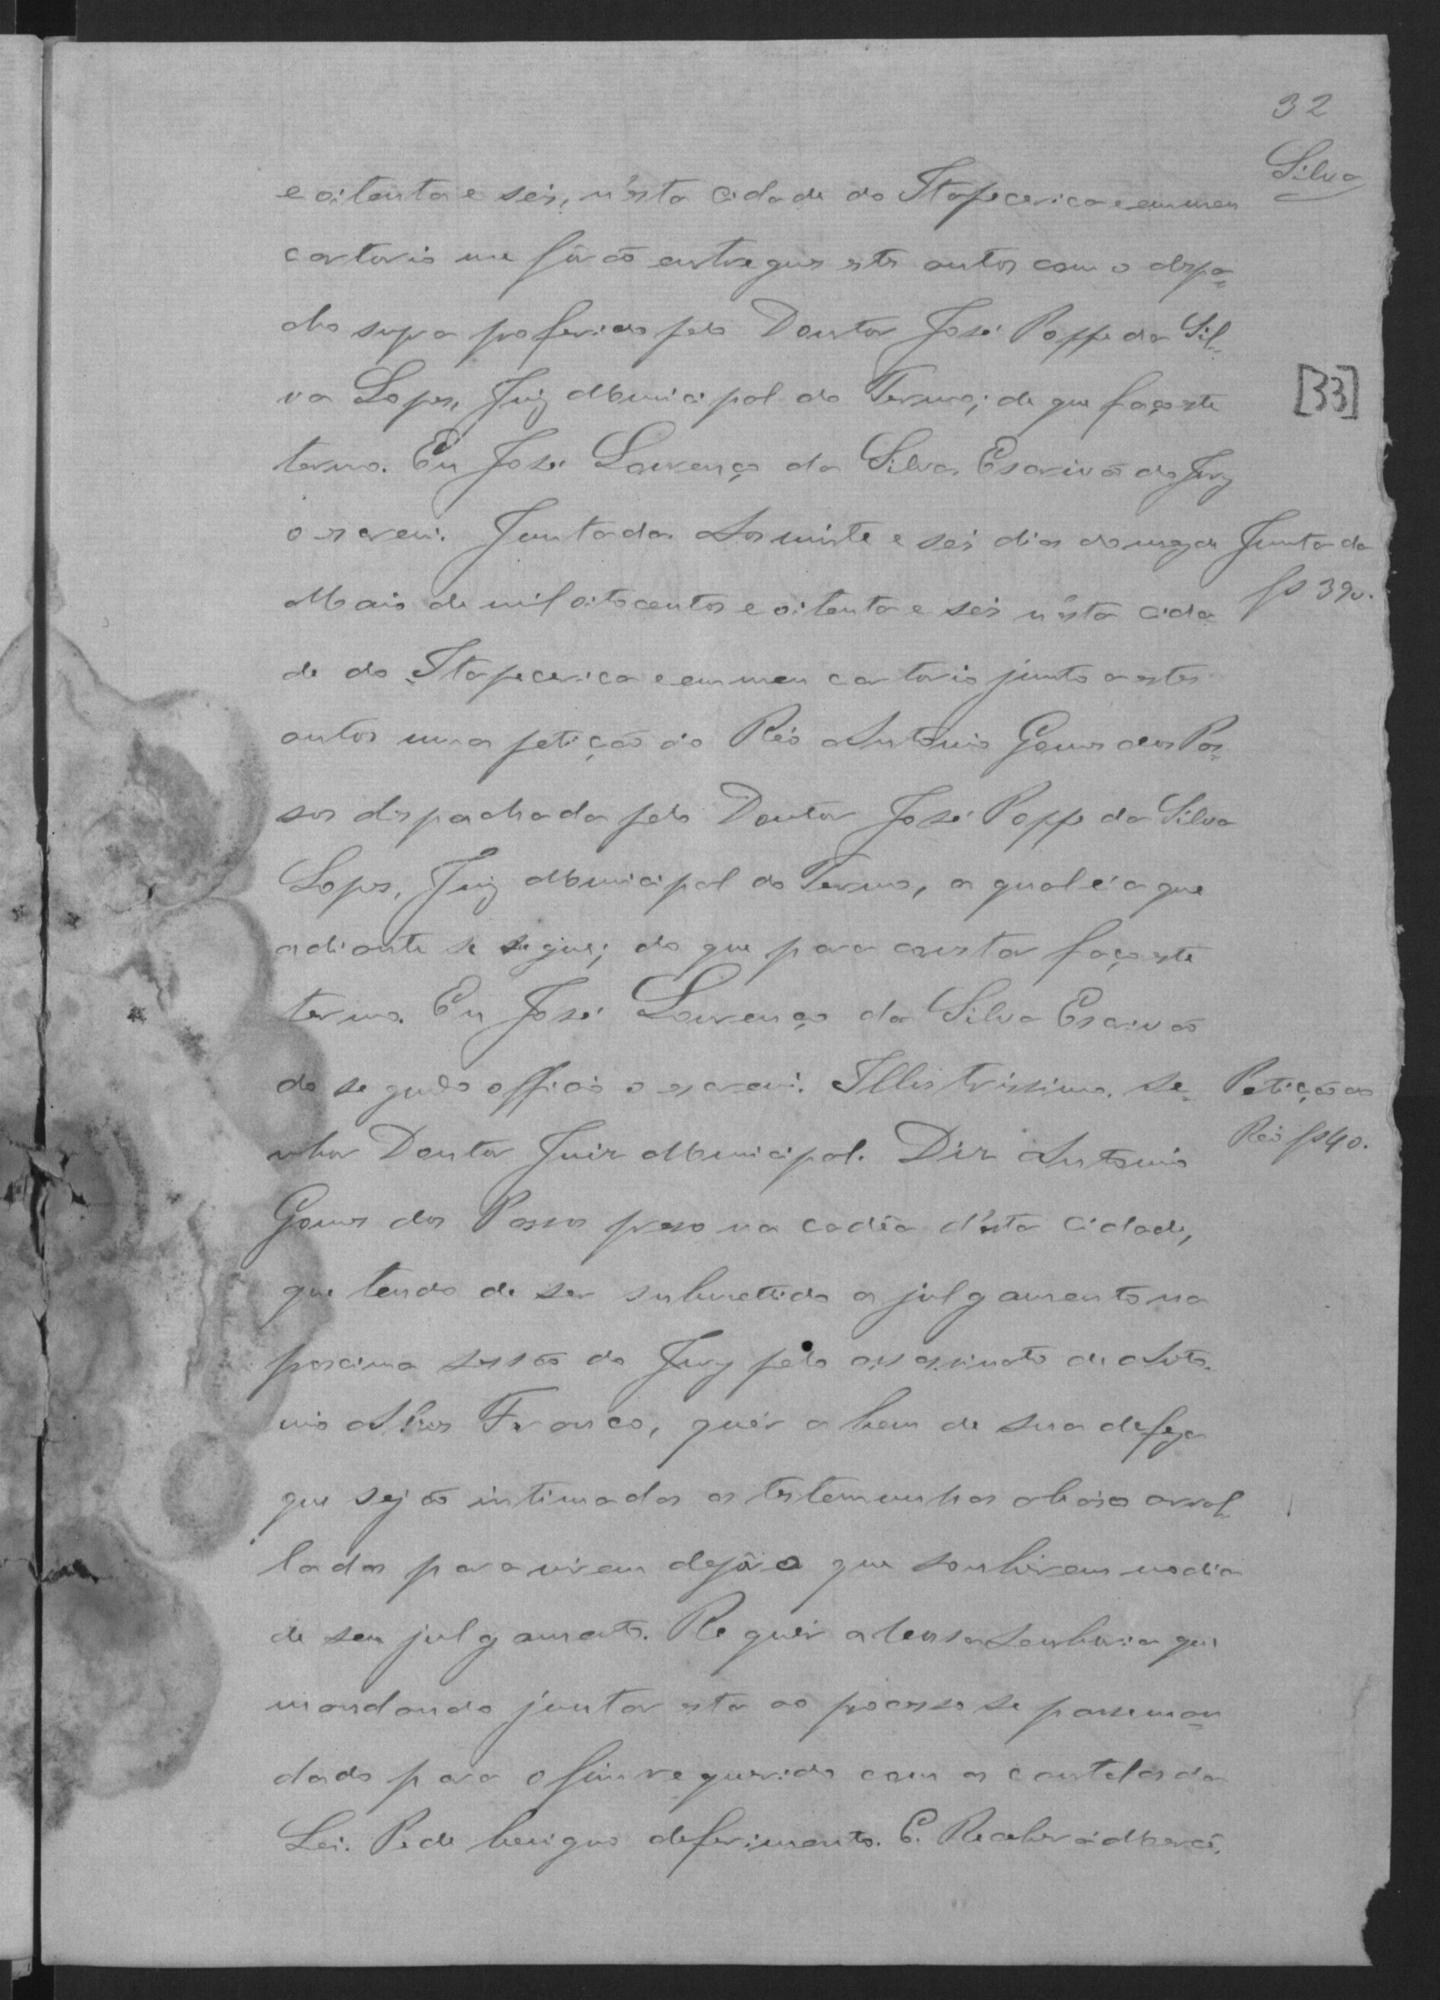 32
Silva
e oitenta e seis, n'esta Cidade do Itapecerica e em meu
cartorio me fôrão entregues estes autos com o despa-
cho supra proferido pelo Doutor José Poppe da Sil-
va Lopes, Juiz Municipal do Termo; de que faço este
[33]
termo. Eu José Lourenço da Silva Escrivão do Jury
o escrevi. Juntada. Aos vinte e seis dias do mez de
Juntada
fs 39v.
Maio de mil oitocentos e oitenta e seis n'esta cida
de do Itapecerica e em meu cartorio junto a estes
autos uma petição do Réo Antonio Gomes dos Pas-
sos despachada pelo Doutor José Poppe da Silva
Lopes, Juiz Municipal do Termo, a qual é a que
adiante se segue; do que para constar faço este
termo. Eu José Lourenço da Silva Escrivão
do segundo officio o escrevi. Illustrissimo. Se-
Petição do
Réo fs 40.
nhor Doutor Juiz Municipal. Diz Antonio
Gomes dos Passos preso na cadêa d'esta Cidade,
que tendo de ser submettido a julgamento na
proxima sessão do Jury pelo assassinato de Anto-
nio Alves Franco, quér a bem de sua defeza
que sejão intimadas as testemunhas abaixo arrol-
ladas para virem depôr o que souberem no dia
de seu julgamento. Requér a Vossa Senhoria que
mandando juntar esta ao processo se passe man-
dado para o fim requerido com as cautelas da
Lei. Pede benigno deferimento. E. Receberá Mercê.